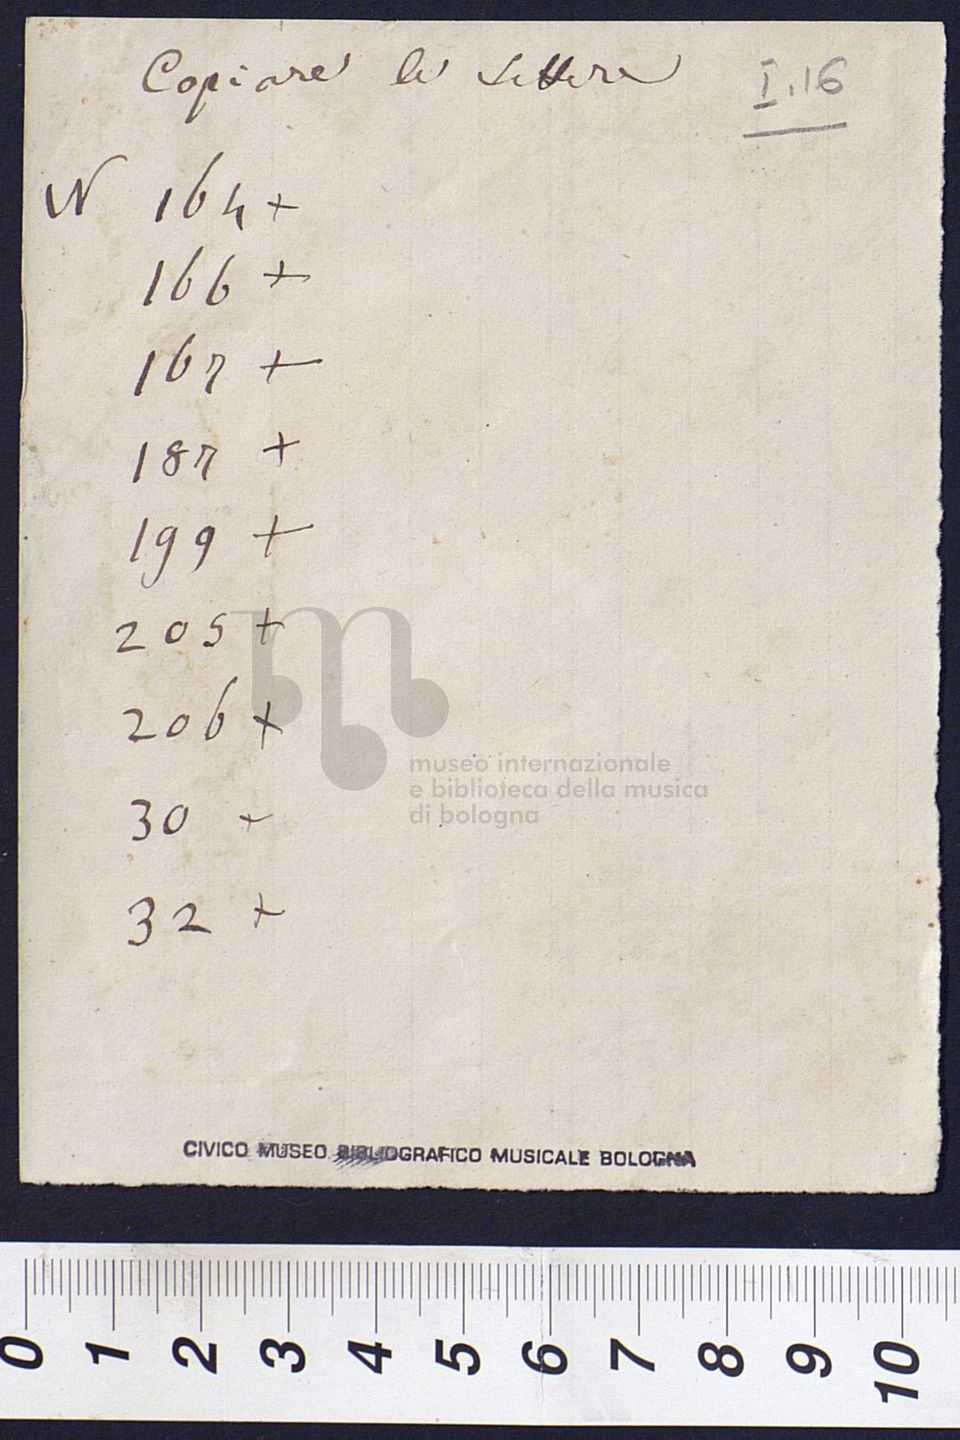 Copiare le Lettere
I.16
N 164 +
166 +
167 +
187 +
199 +
205 +
206 +
30 +
32 +
museo internazionale
e biblioteca della musica
di bologna
CIVICO MUSEO BIBLIOGRAFICO MUSICALE BOLOGNA
0 1 2 3 4 5 6 7 8 9 10